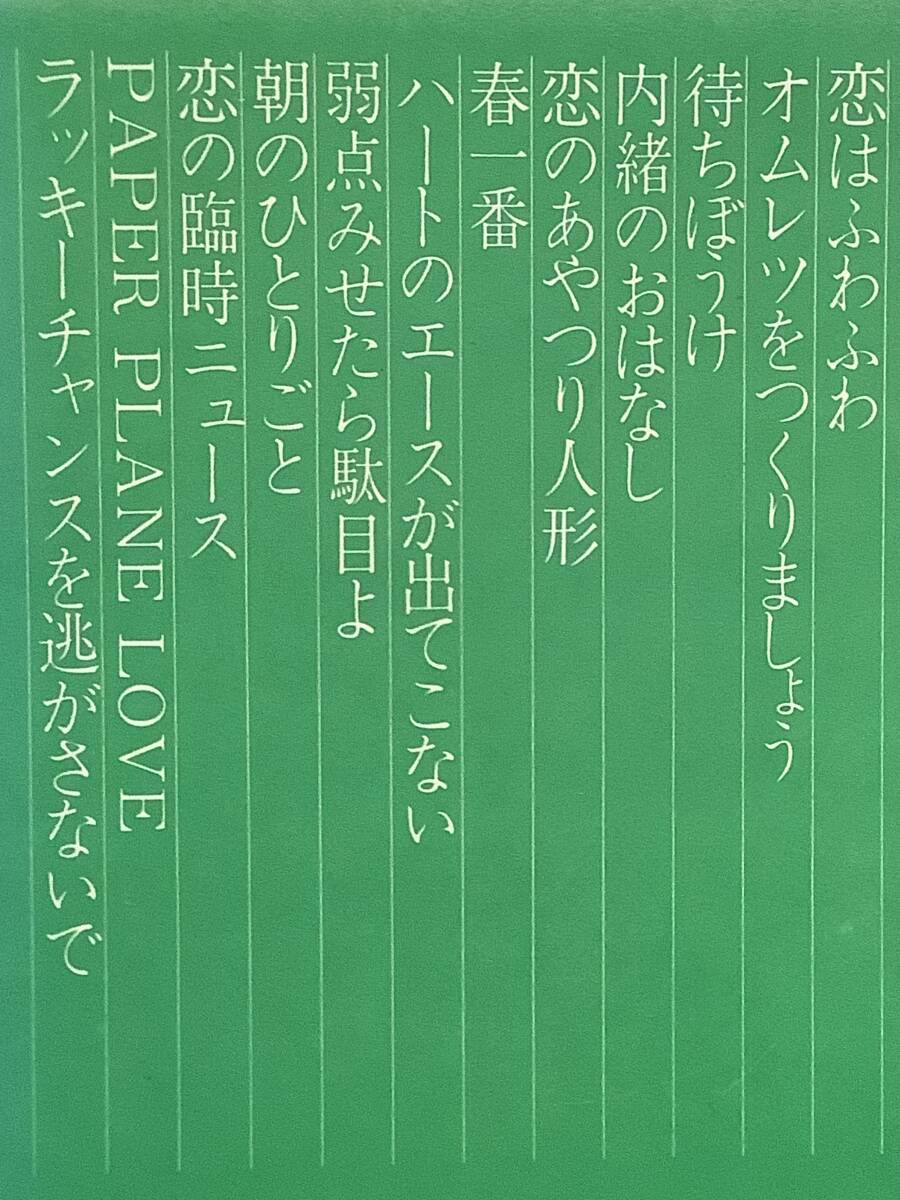 恋はふわふわ
オムレツをつくりましょう
待ちぼうけ
内緒のおはなし
恋のあやつり人形
春一番
ハートのエースが出てこない
弱点みせたら駄目よ
朝のひとりごと
恋の臨時ニュース
PAPER PLANE LOVE
ラッキーチャンスを逃がさないで